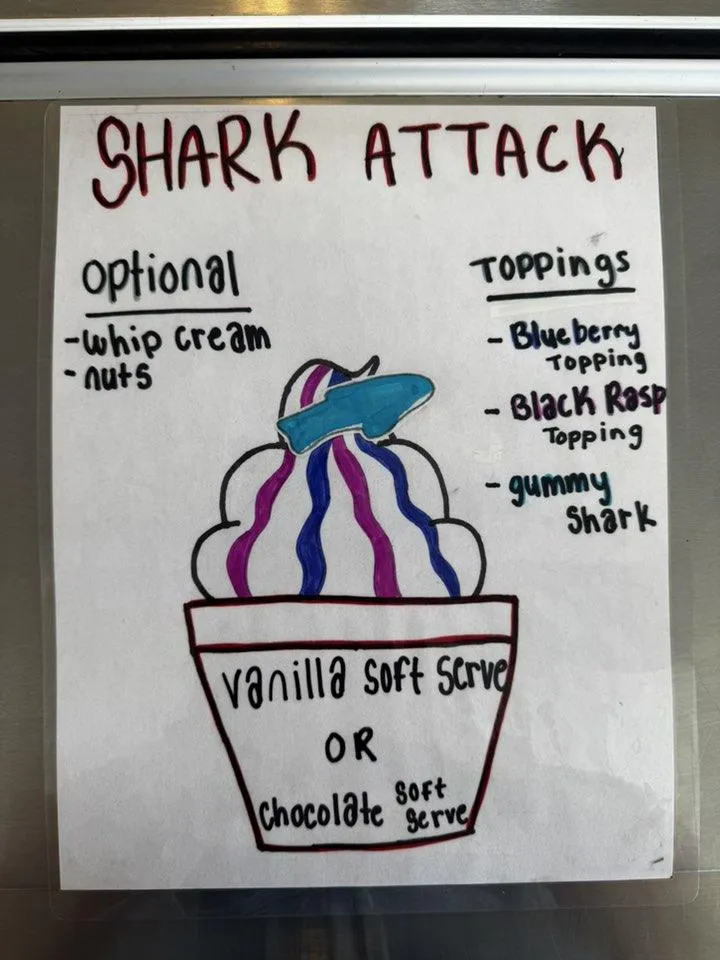 SHARK ATTACK
optional
-whip cream
-nuts
Toppings
- Blueberry
Topping
- Black Rasp
Topping
- gummy
Shark
vanilla soft serve
OR
chocolate soft
serve